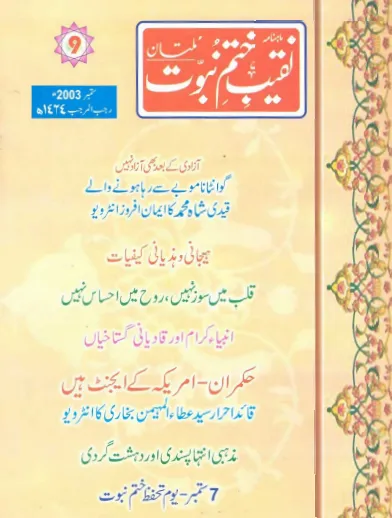 9
ماہنامہ
نقیب ختم نبوت
ملتان
ستمبر 2003ء
رجب المرجب ۱۴۲۴ھ
آزادی کے بعد بھی آزاد نہیں
گوانتاناموبے سے رہا ہونے والے
قیدی شاہ محمد کا ایمان افروز انٹرویو
ہیجانی و ہذیانی کیفیات
قلب میں سوز نہیں، روح میں احساس نہیں
انبیاء کرام اور قادیانی گستاخیاں
حکمران - امریکہ کے ایجنٹ ہیں
قائد احرار سید عطاء المہیمن بخاری کا انٹرویو
مذہبی انتہا پسندی اور دہشت گردی
7 ستمبر - یوم تحفظ ختم نبوت